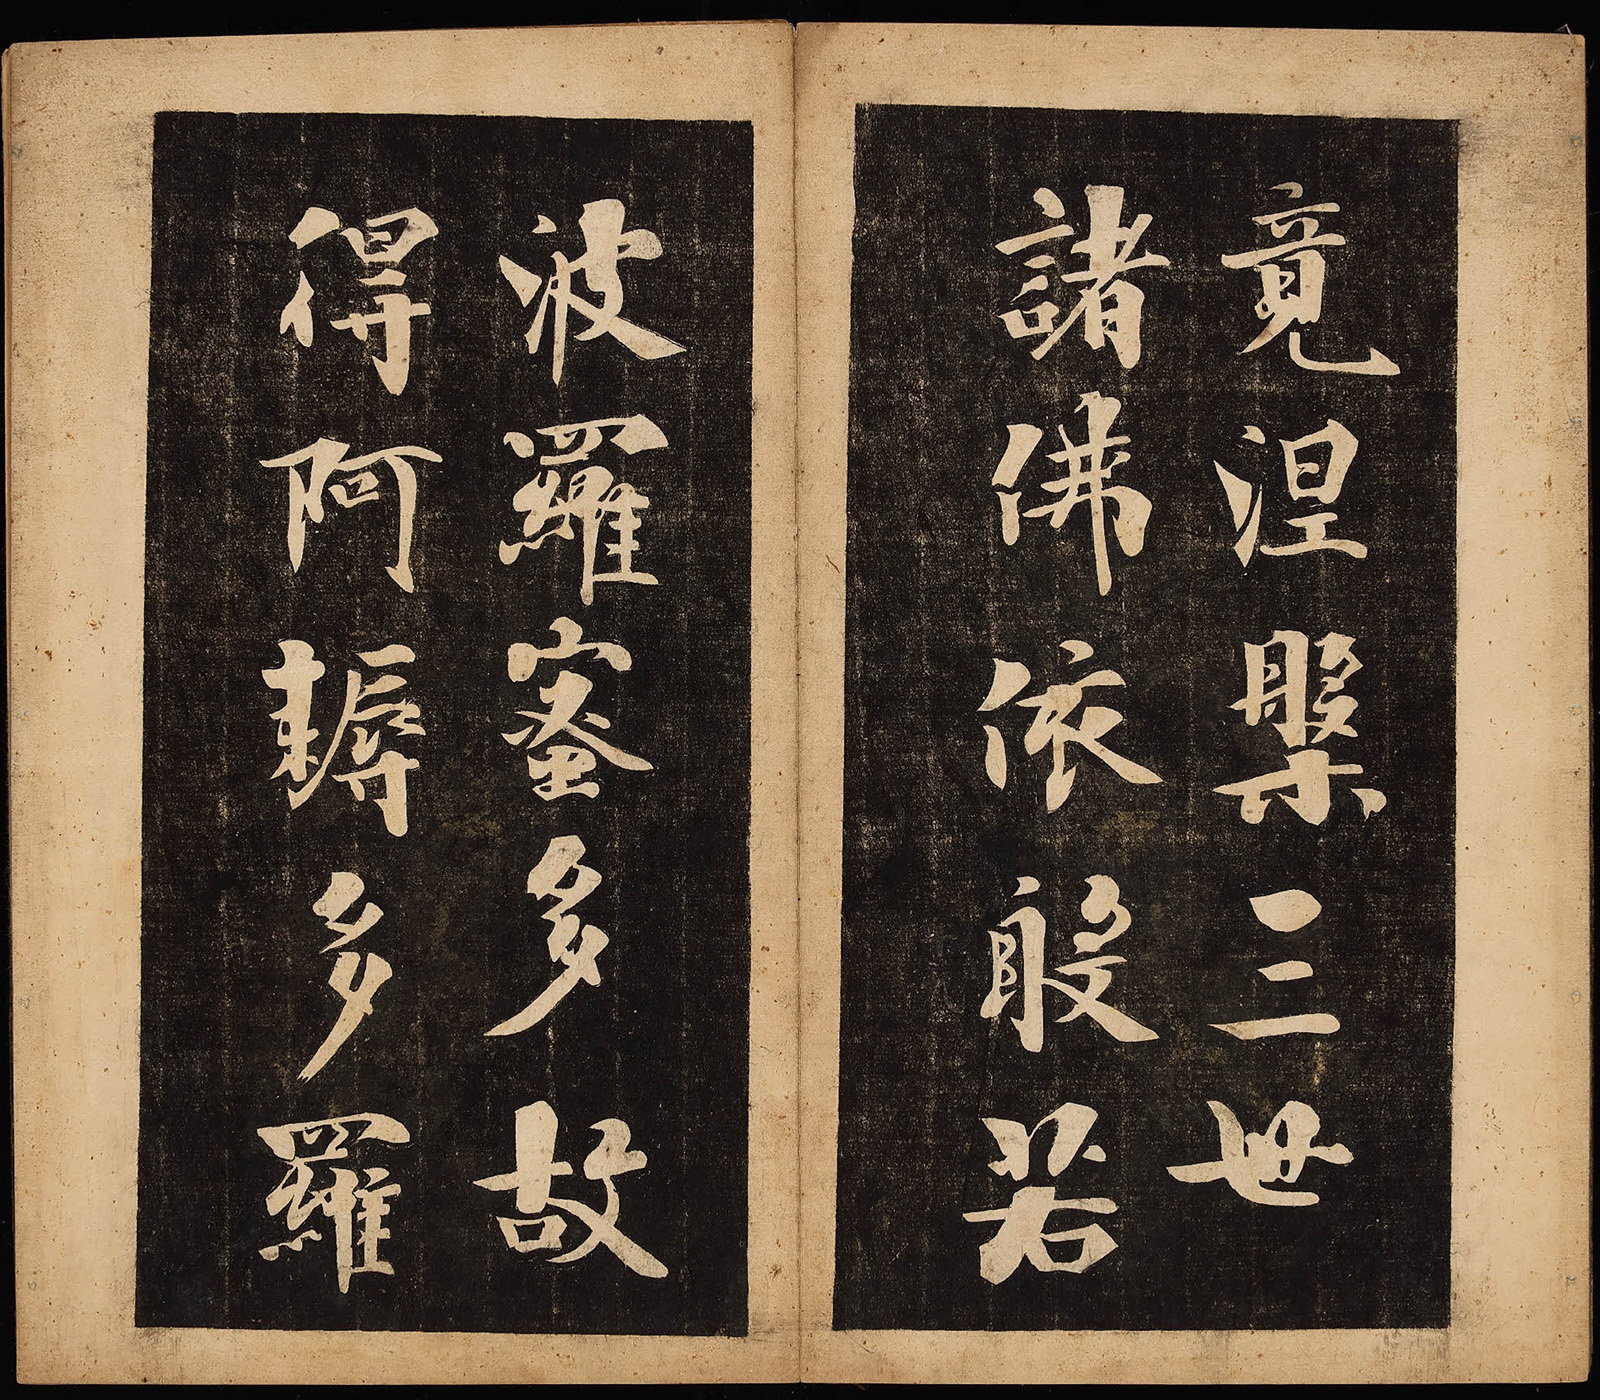 竟涅槃三世
諸佛依般若
波羅蜜多故
得阿耨多羅